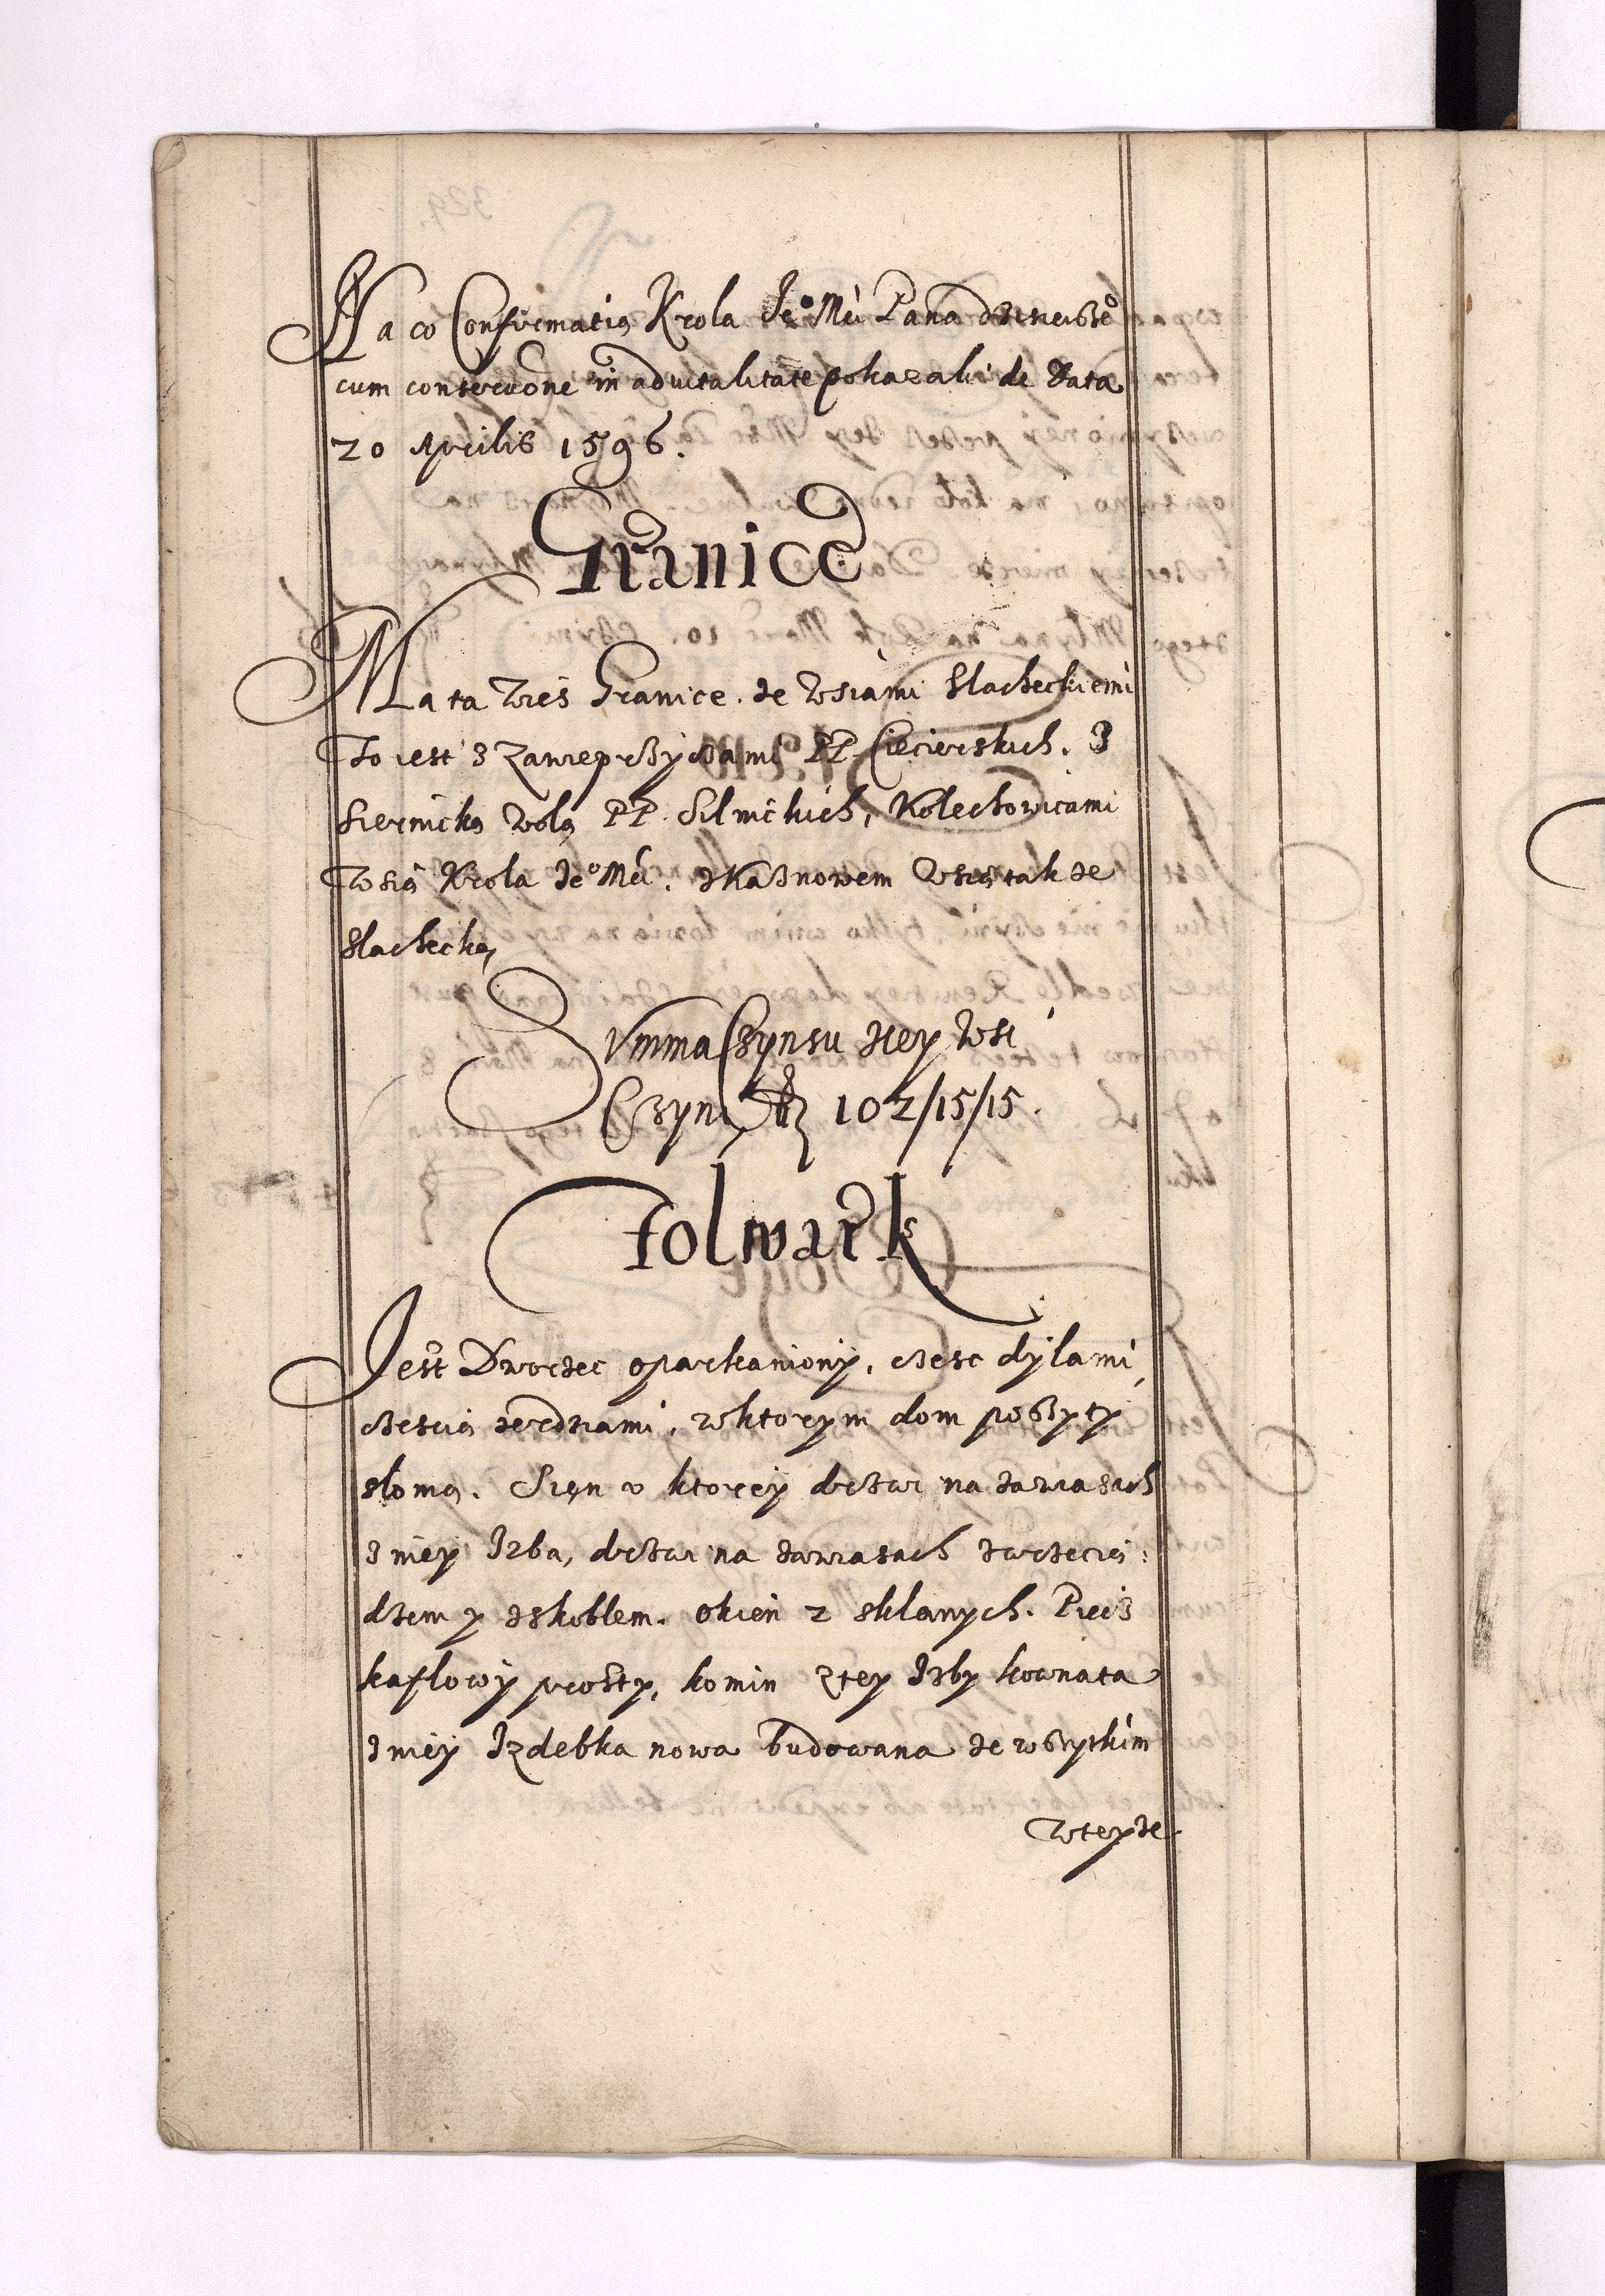 Na co Confirmatią Krola Je° Mći Pana dzisieiße°
cum conseruõne in aduitalitate pokazali de Data
20 Aprilis 1596.
Granice
Ma ta Wieś Granice ze Wsiami Slacheckiemi
To iest z Zawieprzycami PP. Ciecierskich. Z
Siernicką Wolą PP. Silnickich, Kolechowicami
Wsią Krola Je° Mći. z Kaznowem Wsią takze
Slachecką
Summa Czynsu z tey Wsi
Czyni fl 102/15/15.
Folwark
Jest Dworzec oparkaniony, częsc dylami,
częscią zerdziami, w ktorym dom poßyty
słomą. Sięn v ktorey drzwi na zawiasach
Z niey Izba, drzwi na zawiasach z wrzecią:
dzem y z skoblem. Okien 2 sklanych. Piec
kaflowy prosty, komin z tey Izby komnata
Z niey Izdebka nowa budowana ze wßytkim
W teyze